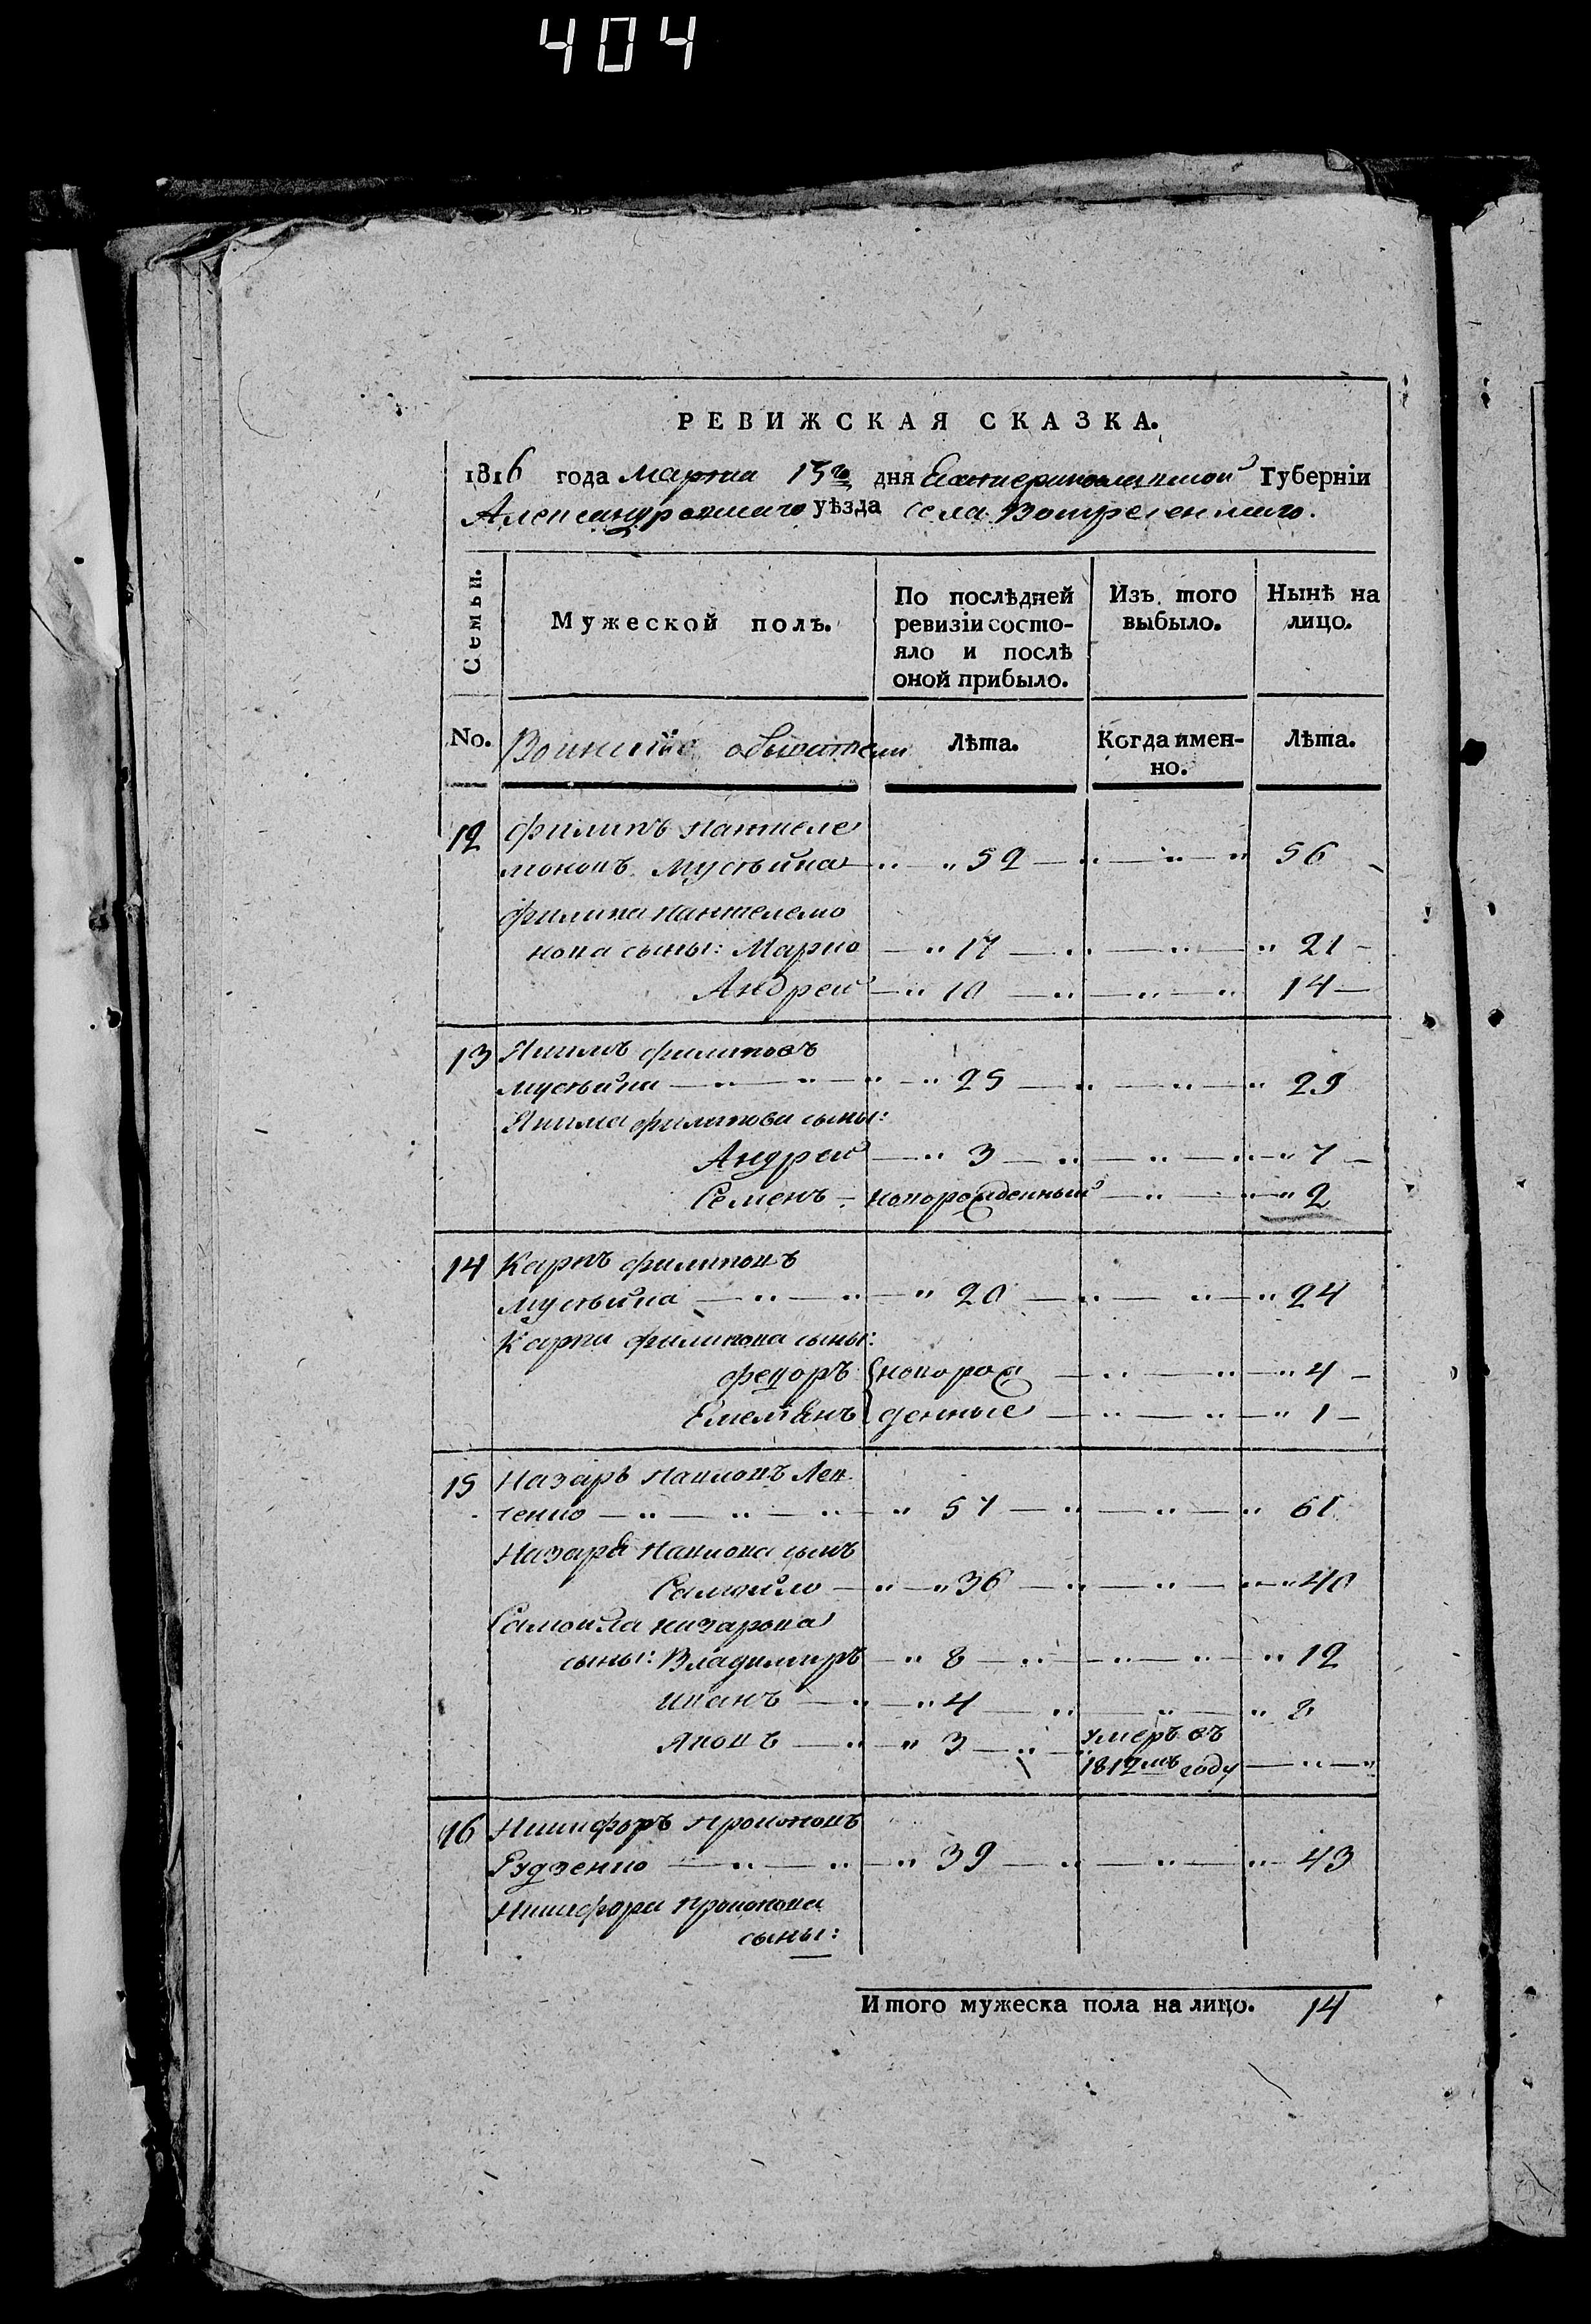 404
РЕВИЖСКАЯ СКАЗКА.
1816 года Марта 15го дня Екатеринославской Губернiи
Александровскаго уѣзда села Воскресенскаго.
Семьи.
Мужеской полъ.
По послѣдней
ревизiи состо-
яло и послѣ
оной прибыло.
Изъ того
выбыло.
Нынѣ на
лицо.
No.
Воинскiе обыватели
Лѣта.
Когда имен-
но.
Лѣта.
12 Филипъ Пантеле
моновъ 52 56
Филипа Пантелемо
нова сыны: Марко 17 21
Андрей 10 14
13 Якимъ Филиповъ
25 29
Якима Филипова сыны:
Андрей 3 7
Семенъ новорожденный 2
14 Карпъ Филиповъ
20 24
Карпа Филипова сыны:
Федоръ новорож 4
Емельянъ денные 1
15 Назаръ Павловъ Лев
ченко 57 61
Назара Павлова сынъ
Самойло 36 40
Самойла Назарова
сыны: Владимиръ 8 12
Иванъ 4 8
Яковъ 3 умеръ въ
1812мъ году
16 Никифоръ Прокоповъ
39 43
Никифора Прокопова
сыны:
Итого мужеска пола на лицо. 14